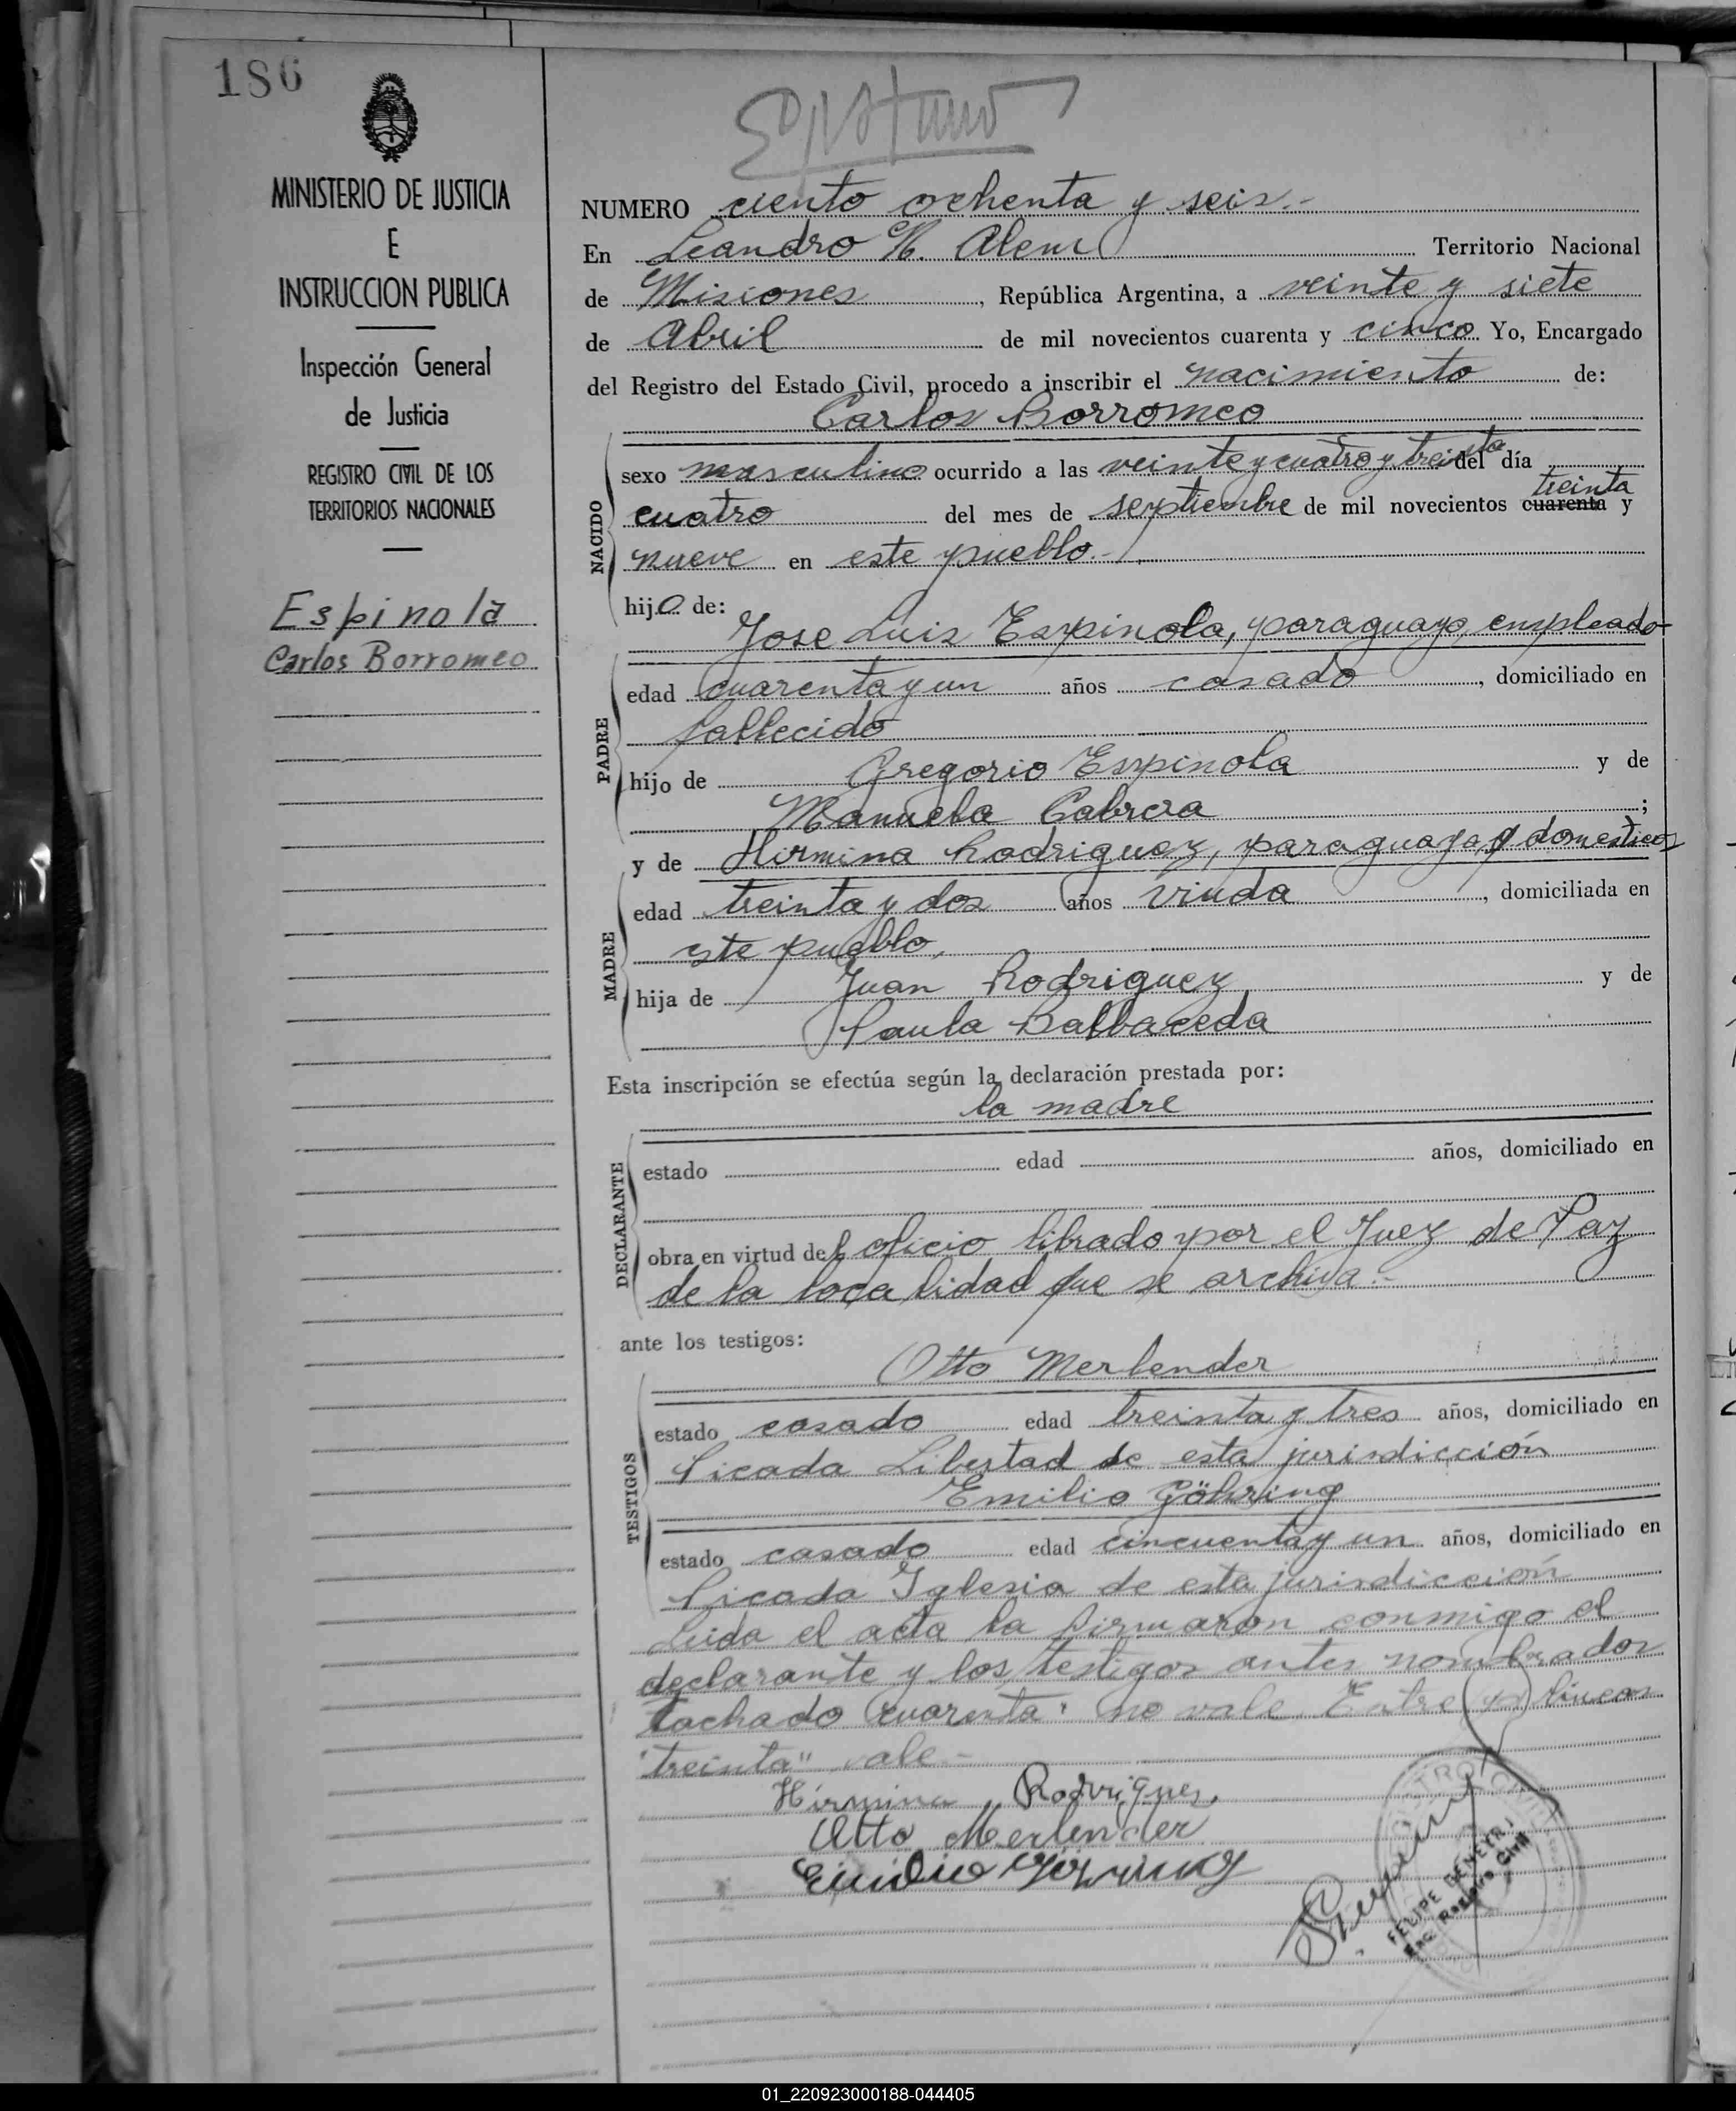 186
MINISTERIO DE JUSTICIA
E
INSTRUCCION PUBLICA
Inspección General
de Justicia
REGISTRO CIVIL DE LOS
TERRITORIOS NACIONALES
Espinola
Carlos Borromeo
NUMERO ciento ochenta y seis.-
En Leandro N. Alem Territorio Nacional
de Misiones, República Argentina, a veinte y siete
de Abril de mil novecientos cuarenta y cinco Yo, Encargado
del Registro del Estado Civil, procedo a inscribir el nacimiento de:
Carlos Borromeo
NACIDO
sexo masculino ocurrido a las veinte y cuatro y treinta del día
treinta
cuatro del mes de septiembre de mil novecientos cuarenta y
nueve en este pueblo.-
hijo de:
Jose Luis Espinola, paraguayo, empleado
PADRE
edad cuarenta y un años casado, domiciliado en
fallecido
hijo de Gregorio Espinola y de
Manuela Cabrera;
y de Hirmina Rodriguez, paraguaya, q domesticos
MADRE
edad treinta y dos años viuda, domiciliada en
este pueblo,
hija de Juan Rodriguez y de
Paula Balbaceda
Esta inscripción se efectúa según la declaración prestada por:
la madre
DECLARANTE
estado edad años, domiciliado en
obra en virtud del oficio librado por el Juez de Paz
de la localidad que se archiva.-
ante los testigos:
Otto Merlender
TESTIGOS
estado casado edad treinta y tres años, domiciliado en
Picada Libertad de esta jurisdicción
Emilio Göhring
estado casado edad cincuenta y un años, domiciliado en
Picada Iglesia de esta jurisdicción
Leida el acta la firmaron conmigo el
declarante y los testigos antes nombrados
tachado "cuarenta" no vale. Entre lineas
"treinta" vale-
Hirmina Rodrigues.
Otto Merlender
Emilio Göhring
FELIPE
Enc. Registro Civil
01_220923000188-044405